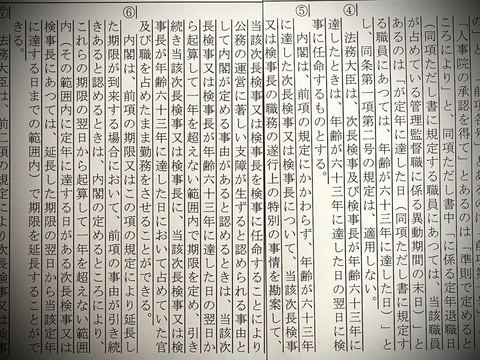 の」と、「前項各号」とあるのは「
「人事院の承認を得て」とあるのは「準則で定めると
ころにより」と、同項ただし書中「に係る定年退職日
(同項ただし書に規定する職員にあつては、当該職員
が占めている管理監督職に係る異動期間の末日)」と
あるのは「が定年に達した日(同項ただし書に規定す
る職員にあつては、年齢が六十三年に達した日)」と
し、同条第一項第二号の規定は、適用しない。
④ 法務大臣は、次長検事及び検事長が年齢六十三年に
達したときは、年齢が六十三年に達した日の翌日に検
事に任命するものとする。
⑤ 内閣は、前項の規定にかかわらず、年齢が六十三年
に達した次長検事又は検事長について、当該次長検事
又は検事長の職務の遂行上の特別の事情を勘案して、
当該次長検事又は検事長を検事に任命することにより
公務の運営に著しい支障が生ずると認められる事由と
して内閣が定める事由があると認めるときは、当該次
長検事又は検事長が年齢六十三年に達した日の翌日か
ら起算して一年を超えない範囲内で期限を定め、引き
続き当該次長検事又は検事長に、当該次長検事又は検
事長が年齢六十三年に達した日において占めていた官
及び職を占めたまま勤務をさせることができる。
⑥ 内閣は、前項の期限又はこの項の規定により延長し
た期限が到来する場合において、前項の事由が引き続
きあると認めるときは、内閣の定めるところにより、
これらの期限の翌日から起算して一年を超えない範囲
内(その範囲内に定年に達する日がある次長検事又は
検事長にあつては、延長した期限の翌日から当該定年
に達する日までの範囲内)で期限を延長することがで
きる。
⑦ 法務大臣は、前二項の規定により次長検事又は検事